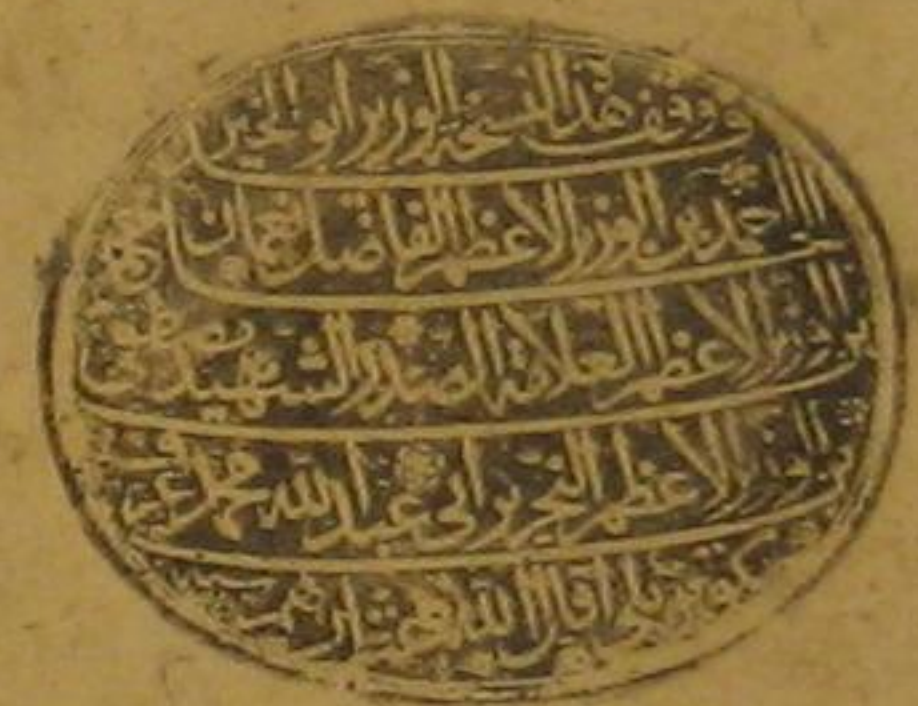 وقف هذه النسخة الوزير ابو الخير
احمد بن الوزير الاعظم الفاضل نعمان
بن الوزير الاعظم العلامة الصدر الشهيد مصطفى
بن الوزير الاعظم النحرير ابى عبد الله محمد عرف
بكوپريلى اقال الله عثارهم